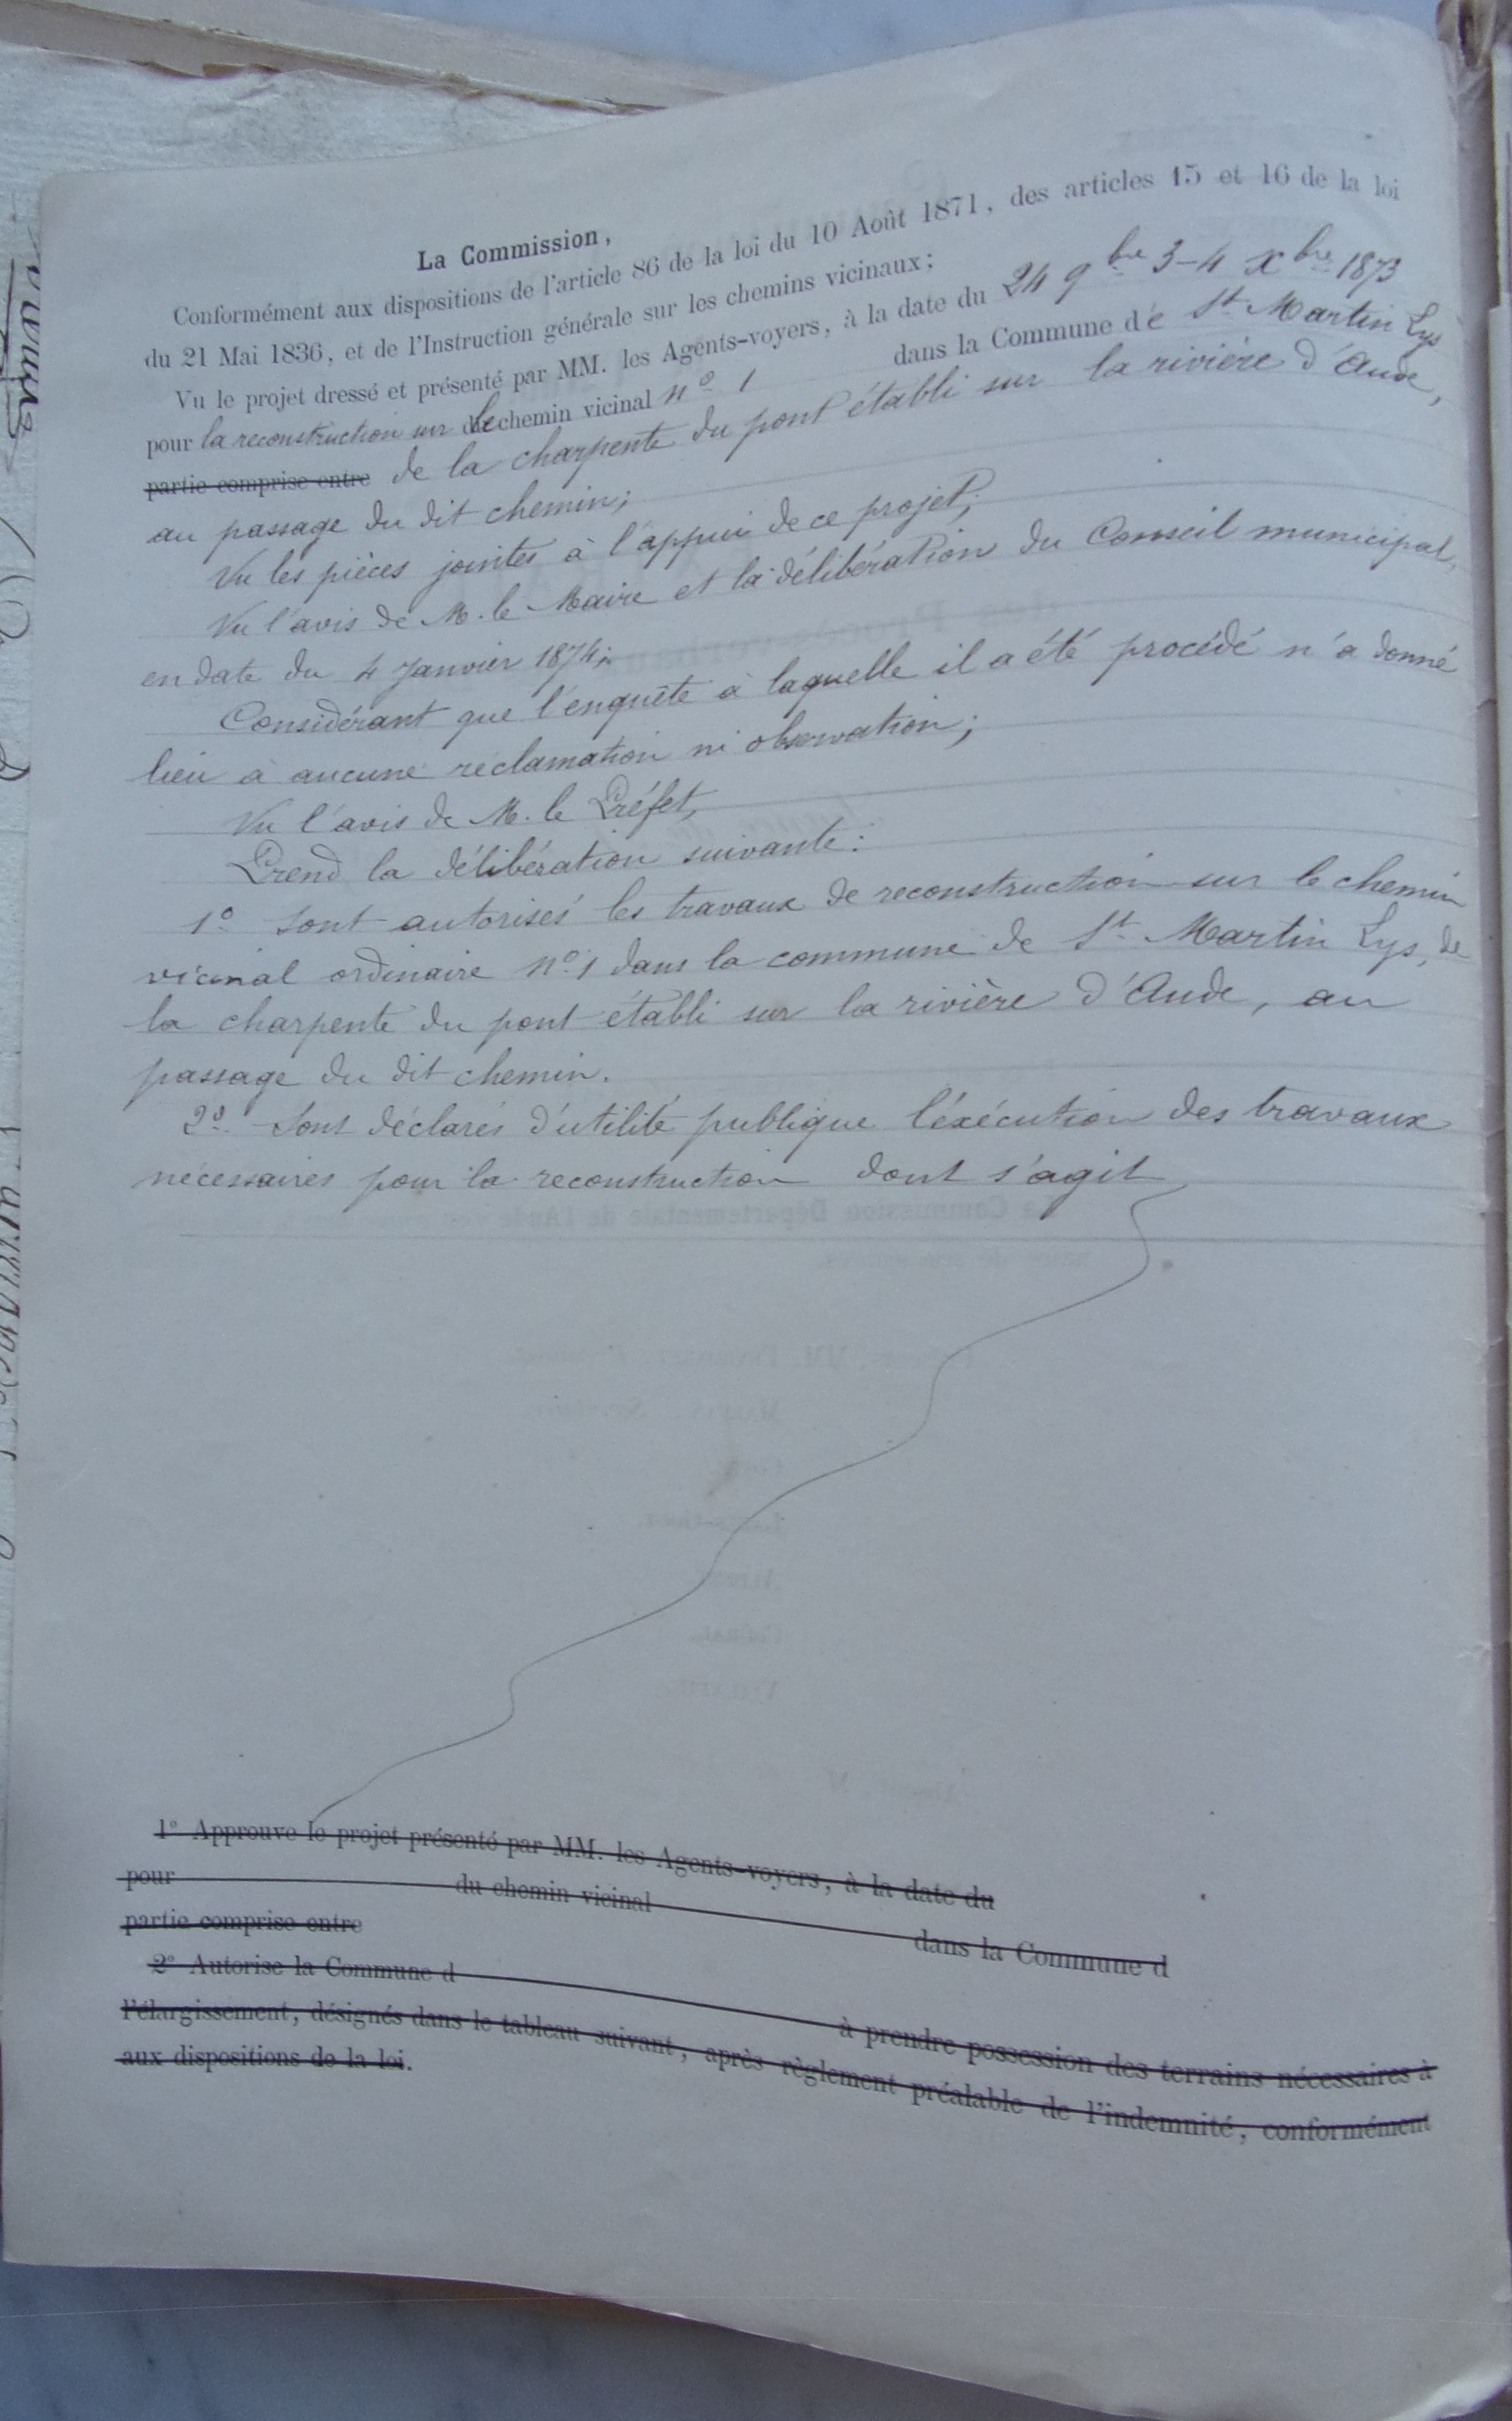 La Commission,
Conformément aux dispositions de l'article 86 de la loi du 10 Août 1871, des articles 15 et 16 de la loi
du 21 Mai 1836, et de l'Instruction générale sur les chemins vicinaux;
Vu le projet dressé et présenté par MM. les Agents-voyers, à la date du 24 9bre 3-4 Xbre 1873
pour la reconstruction sur le chemin vicinal n° 1 dans la Commune de St Martin Lys
partie comprise entre de la charpente du pont établi sur la rivière d'Aude,
au passage du dit chemin;
Vu les pièces jointes à l'appui de ce projet;
Vu l'avis de M. le Maire et la délibération du Conseil municipal,
en date du 4 Janvier 1874;
Considérant que l'enquête à laquelle il a été procédé n'a donné
lieu à aucune réclamation ni observation;
Vu l'avis de M. le Préfet,
Prend la délibération suivante:
1° Sont autorisés les travaux de reconstruction sur le chemin
vicinal ordinaire n° 1 dans la commune de St Martin Lys, de
la charpente du pont établi sur la rivière d'Aude, au
passage du dit chemin.
2° Sont déclarés d'utilité publique l'éxécution des travaux
nécessaires pour la reconstruction dont s'agit
1° Approuve le projet présenté par MM. les Agents-voyers, à la date du
pour du chemin vicinal dans la Commune d
partie comprise entre
2° Autorise la Commune d à prendre possession des terrains nécessaires à
l'élargissement, désignés dans le tableau suivant, après règlement préalable de l'indemnité, conformément
aux dispositions de la loi.